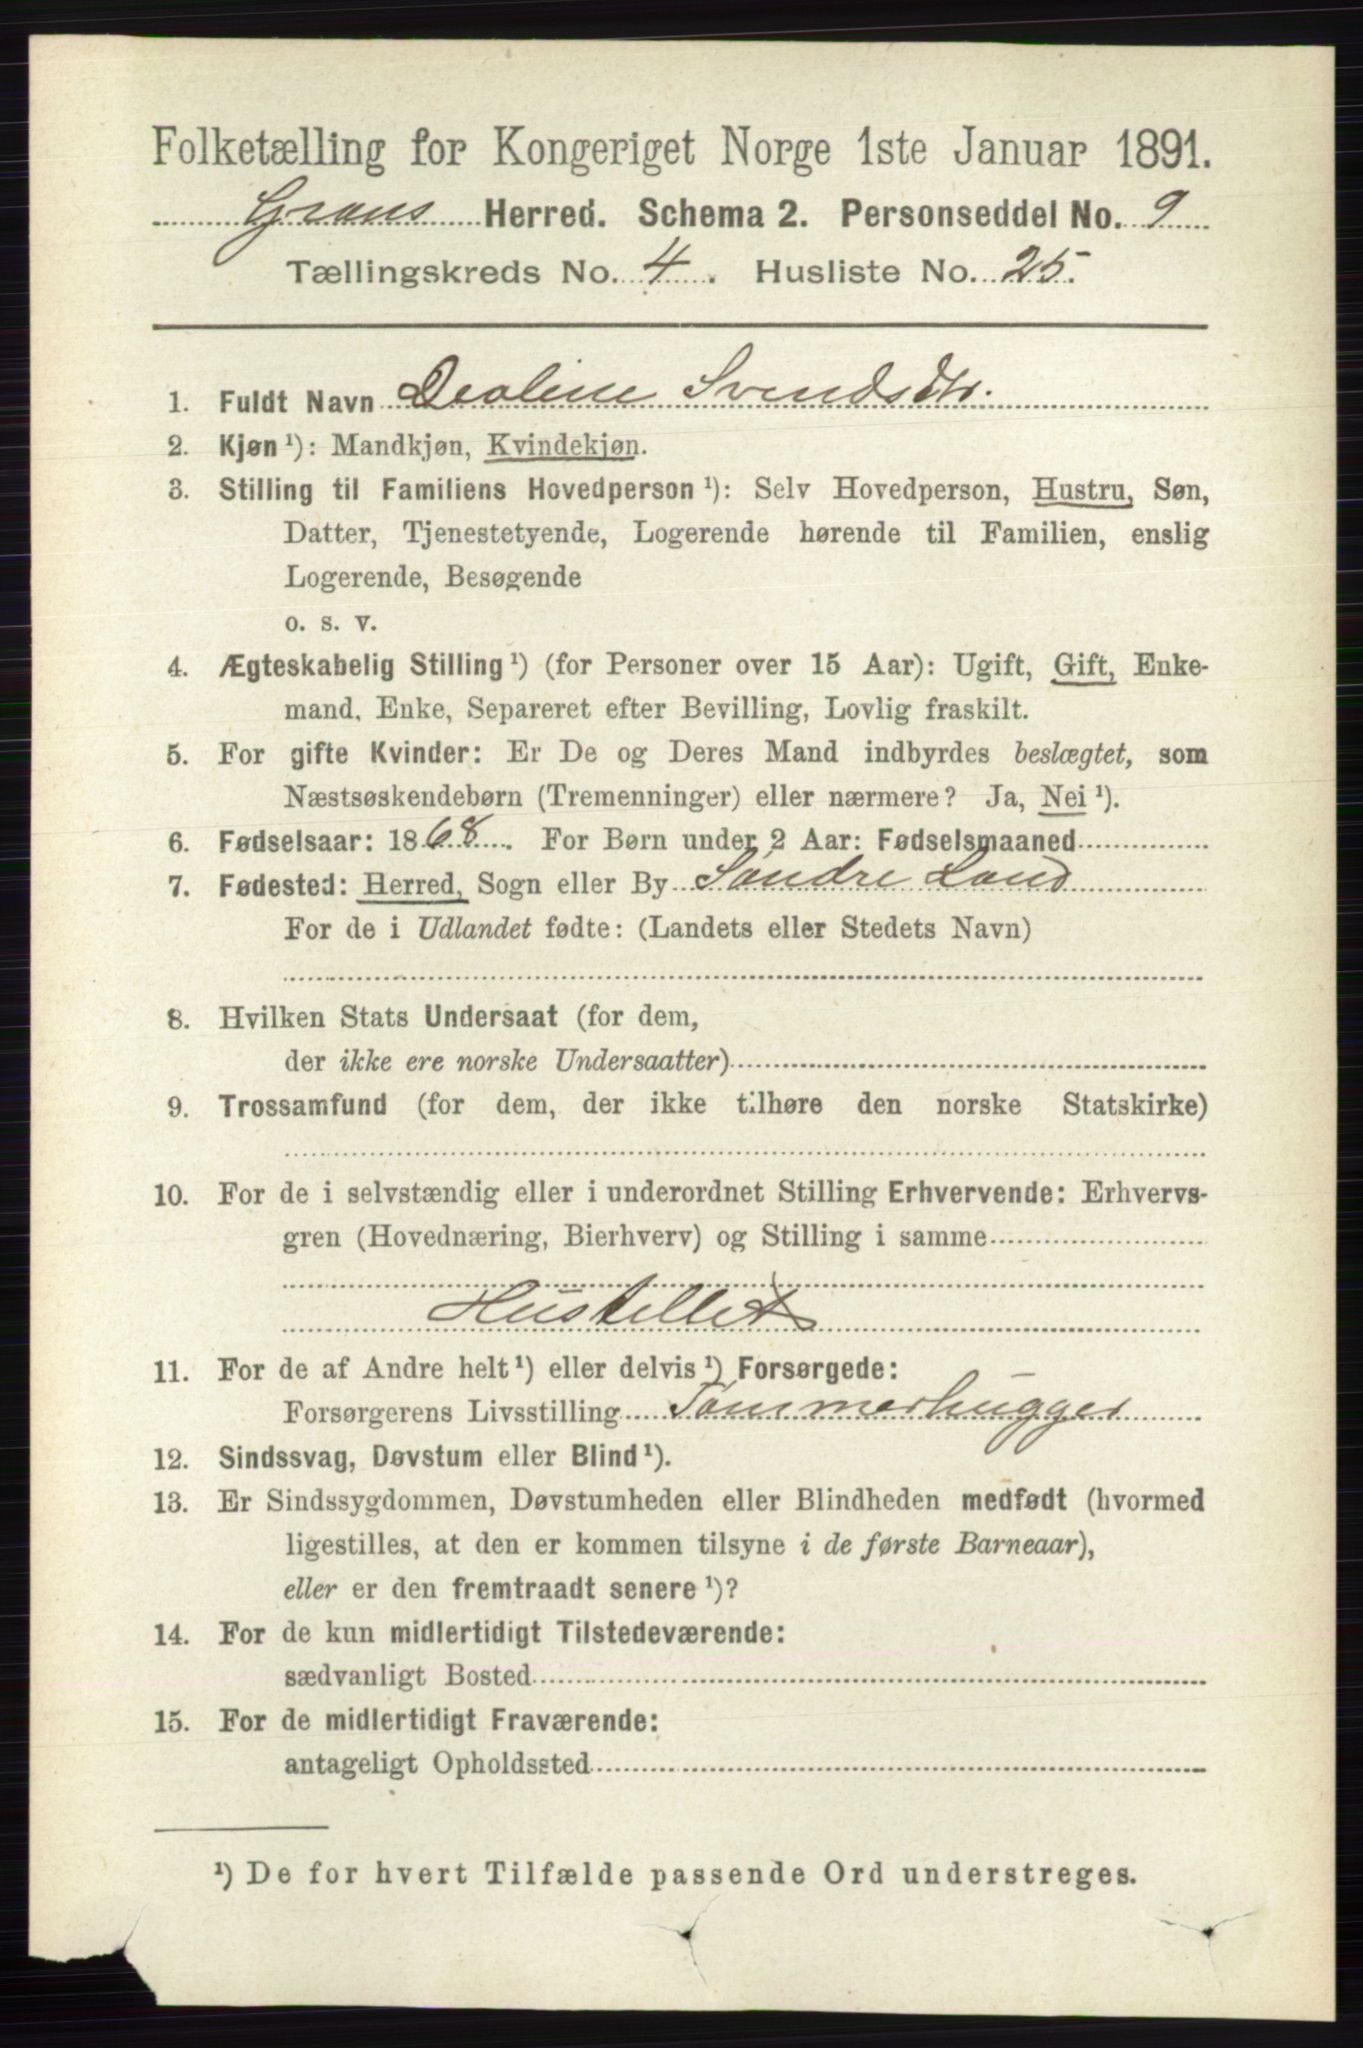 Folketælling for Kongeriget Norge 1ste Januar 1891.
Grans Herred. Schema 2. Personseddel No. 9
Tællingskreds No. 4. Husliste No. 25.
1. Fuldt Navn Deoline Svendsdtr.
2. Kjøn ¹): Mandkjøn, Kvindekjøn.
3. Stilling til Familiens Hovedperson ¹): Selv Hovedperson, Hustru, Søn,
Datter, Tjenestetyende, Logerende hørende til Familien, enslig
Logerende, Besøgende
o. s. v.
4. Ægteskabelig Stilling ¹) (for Personer over 15 Aar): Ugift, Gift, Enke-
mand, Enke, Separeret efter Bevilling, Lovlig fraskilt.
5. For gifte Kvinder: Er De og Deres Mand indbyrdes beslægtet, som
Næstsøskendebørn (Tremenninger) eller nærmere? Ja, Nei ¹).
6. Fødselsaar: 1868. For Børn under 2 Aar: Fødselsmaaned
7. Fødested: Herred, Sogn eller By Söndre Land
For de i Udlandet fødte: (Landets eller Stedets Navn)
8. Hvilken Stats Undersaat (for dem,
der ikke ere norske Undersaatter)
9. Trossamfund (for dem, der ikke tilhøre den norske Statskirke)
10. For de i selvstændig eller i underordnet Stilling Erhvervende: Erhvervs-
gren (Hovednæring, Bierhverv) og Stilling i samme
Husstellet
11. For de af Andre helt ¹) eller delvis ¹) Forsørgede:
Forsørgerens Livsstilling Tömmerhugger
12. Sindssvag, Døvstum eller Blind ¹).
13. Er Sindssygdommen, Døvstumheden eller Blindheden medfødt (hvormed
ligestilles, at den er kommen tilsyne i de første Barneaar),
eller er den fremtraadt senere ¹)?
14. For de kun midlertidigt Tilstedeværende:
sædvanligt Bosted
15. For de midlertidigt Fraværende:
antageligt Opholdssted
¹) De for hvert Tilfælde passende Ord understreges.